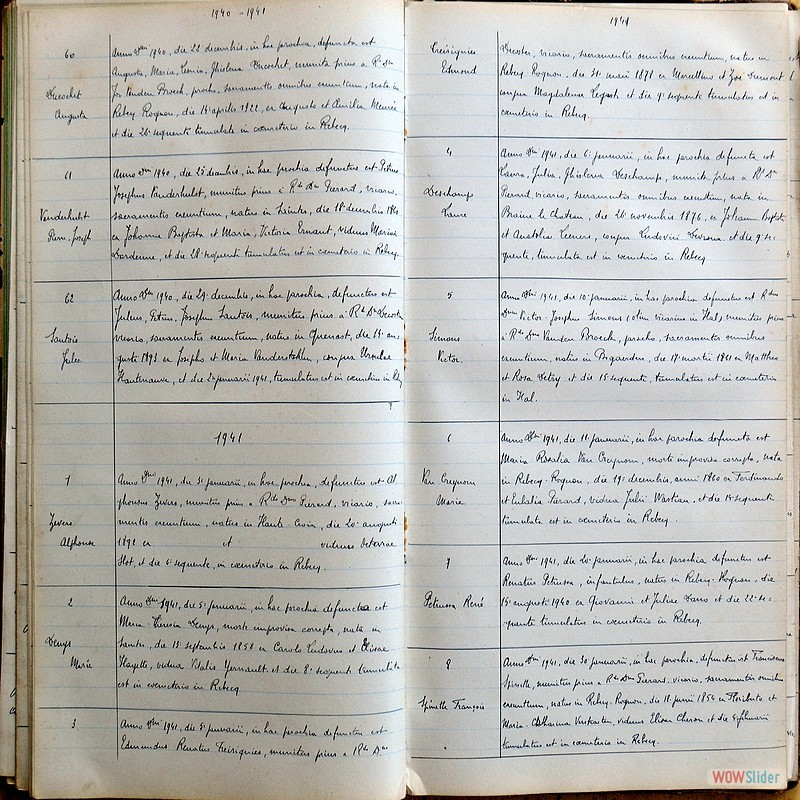 1940 - 1941
60
Ducochet
Augusta
Anno Dni 1940, die 22 decembris, in hac parochia, defuncta est
Augusta, Maria, Leonia, Ghislena Ducochet, munita prius a Rdo Dno
Vanden Broeck, parocho, sacramentis omnibus exeuntium, nata in
Rebecq-Rognon, die 14 aprilis 1922, ex Augusto et Emilia Meurée
et die 26 sequente tumulata est in coemeterio in Rebecq.
61
Vanderhulst
Pierre, Joseph
Anno Dni 1940, die 25 decembris, in hac parochia defunctus est Petrus
Josephus Vanderhulst, munitus prius a Rdo Dno Pierard, vicario,
sacramentis exeuntium, natus in Saintes, die 18 decembris
ex Johanne Baptista et Maria, Victoria Ernaut, viduus Maria
Dardenne, et die 28 sequenti tumulatus est in coemeterio in Rebecq.
62
Santois
Jules
Anno Dni 1940, die 29 decembris, in hac parochia, defunctus est
Julius, Petrus, Joseph Santois, munitus prius a Rdo Dno Decoster
vicario, sacramentis exeuntium, natus in Quenast, die 14 au-
gusti 1893 ex Josepho et Maria Vanderstokken, conjux Ursulae
Hautenauve, et die 2 januarii 1941, tumulatus est in coemeterio in
1941
1
Zevers
Alphonse
Anno Dni 1941, die 3 januarii, in hac parochia, defunctus est Al-
phonsus Zevers, munitus prius a Rdo Dno Pierard, vicario, sacra-
mentis exeuntium, natus in Haute-Croix, die 20 augusti
1892 ex et viduus Octaviae
Slot, et die 6 sequente, in coemeterio in Rebecq.
2
Denys
Marie
Anno Dni 1941, die 5 januarii, in hac parochia defuncta est
Maria Theresia Denys, morte improvisa correpta, nata in
Santes, die 15 septembris 1854 ex Carolo Ludovico et Elisae
Hayette, vidua Vitalis Gernault et die 8 sequenti tumulata
est in coemeterio in Rebecq
3
Anno Dni 1941, die 5 januarii, in hac parochia defunctus est
Edmundus Renatus Freisignies, munitus prius a Rdo Dno
1941
Freisignies
Edmond
Decoster, vicario, sacramentis omnibus exeuntium, natus in
Rebecq-Rognon, die 31 maii 1878 ex Marcellino et Zoé Dumont
conjux Magdalenae Legast et die 9 sequente tumulatus est in
coemeterio in Rebecq.
4
Deschamp
Laure
Anno Dni 1941, die 6 januarii, in hac parochia defuncta est
Laura, Julia, Ghislena Deschamp, munita prius a Rdo Dno
Pierard, vicario, sacramentis omnibus exeuntium, nata in
Braine le Chateau, die 26 novembris 1876, ex Johanne Baptista
et Anatolia Leenera, conjux Ludovici Devroux, et die 9 se-
quente, tumulata est in coemeterio in Rebecq
5
Simons
Victor.
Anno Dni 1941, die 10 januarii, in hac parochia defunctus est Rdus
Dnus Victor Joseph Simons (olim vicarius in Hal) munitus prius
a Rdo Dno Vanden Broeck, parocho, sacramentis omnibus
exeuntium, natus in Bogaarden, die 17 martii 1861 ex Matthaeo
et Rosa Detry et die 15 sequente, tumulatus est in coemeterio
in Hal.
6
Van Cregnom
Marie
Anno Dni 1941, die 11 januarii, in hac parochia defuncta est
Maria Rosalia Van Cregnom, morte improvisa correpta, nata
in Rebecq-Rognon, die 19 decembris, anni 1860 ex Ferdinando
et Eulalia Pierard, vidua Julii Wartian, et die 14 sequente
tumulata est in coemeterio in Rebecq.
7
Petrussa René
Anno Dni 1941, die 20 januarii, in hac parochia defunctus est
Renatus Petrussa, infantulus, natus in Rebecq-Rognon, die
15 augusti 1940 ex Giovanni et Julia Dano et die 22 se-
quente tumulatus in coemeterio in Rebecq.
8
Spinette François
Anno Dni 1941, die 30 januarii, in hac parochia, defunctus est Franciscus
Spinette, munitus prius a Rdo Dno Pierard, vicario, sacramentis omnibus
exeuntium, natus in Rebecq-Rognon, die 11 junii 1854 ex Floriberto et
Maria-Catharina Verpasten, viduus Elisae Cheron et die februarii
tumulatus est in coemeterio in Rebecq.
WOWSlider